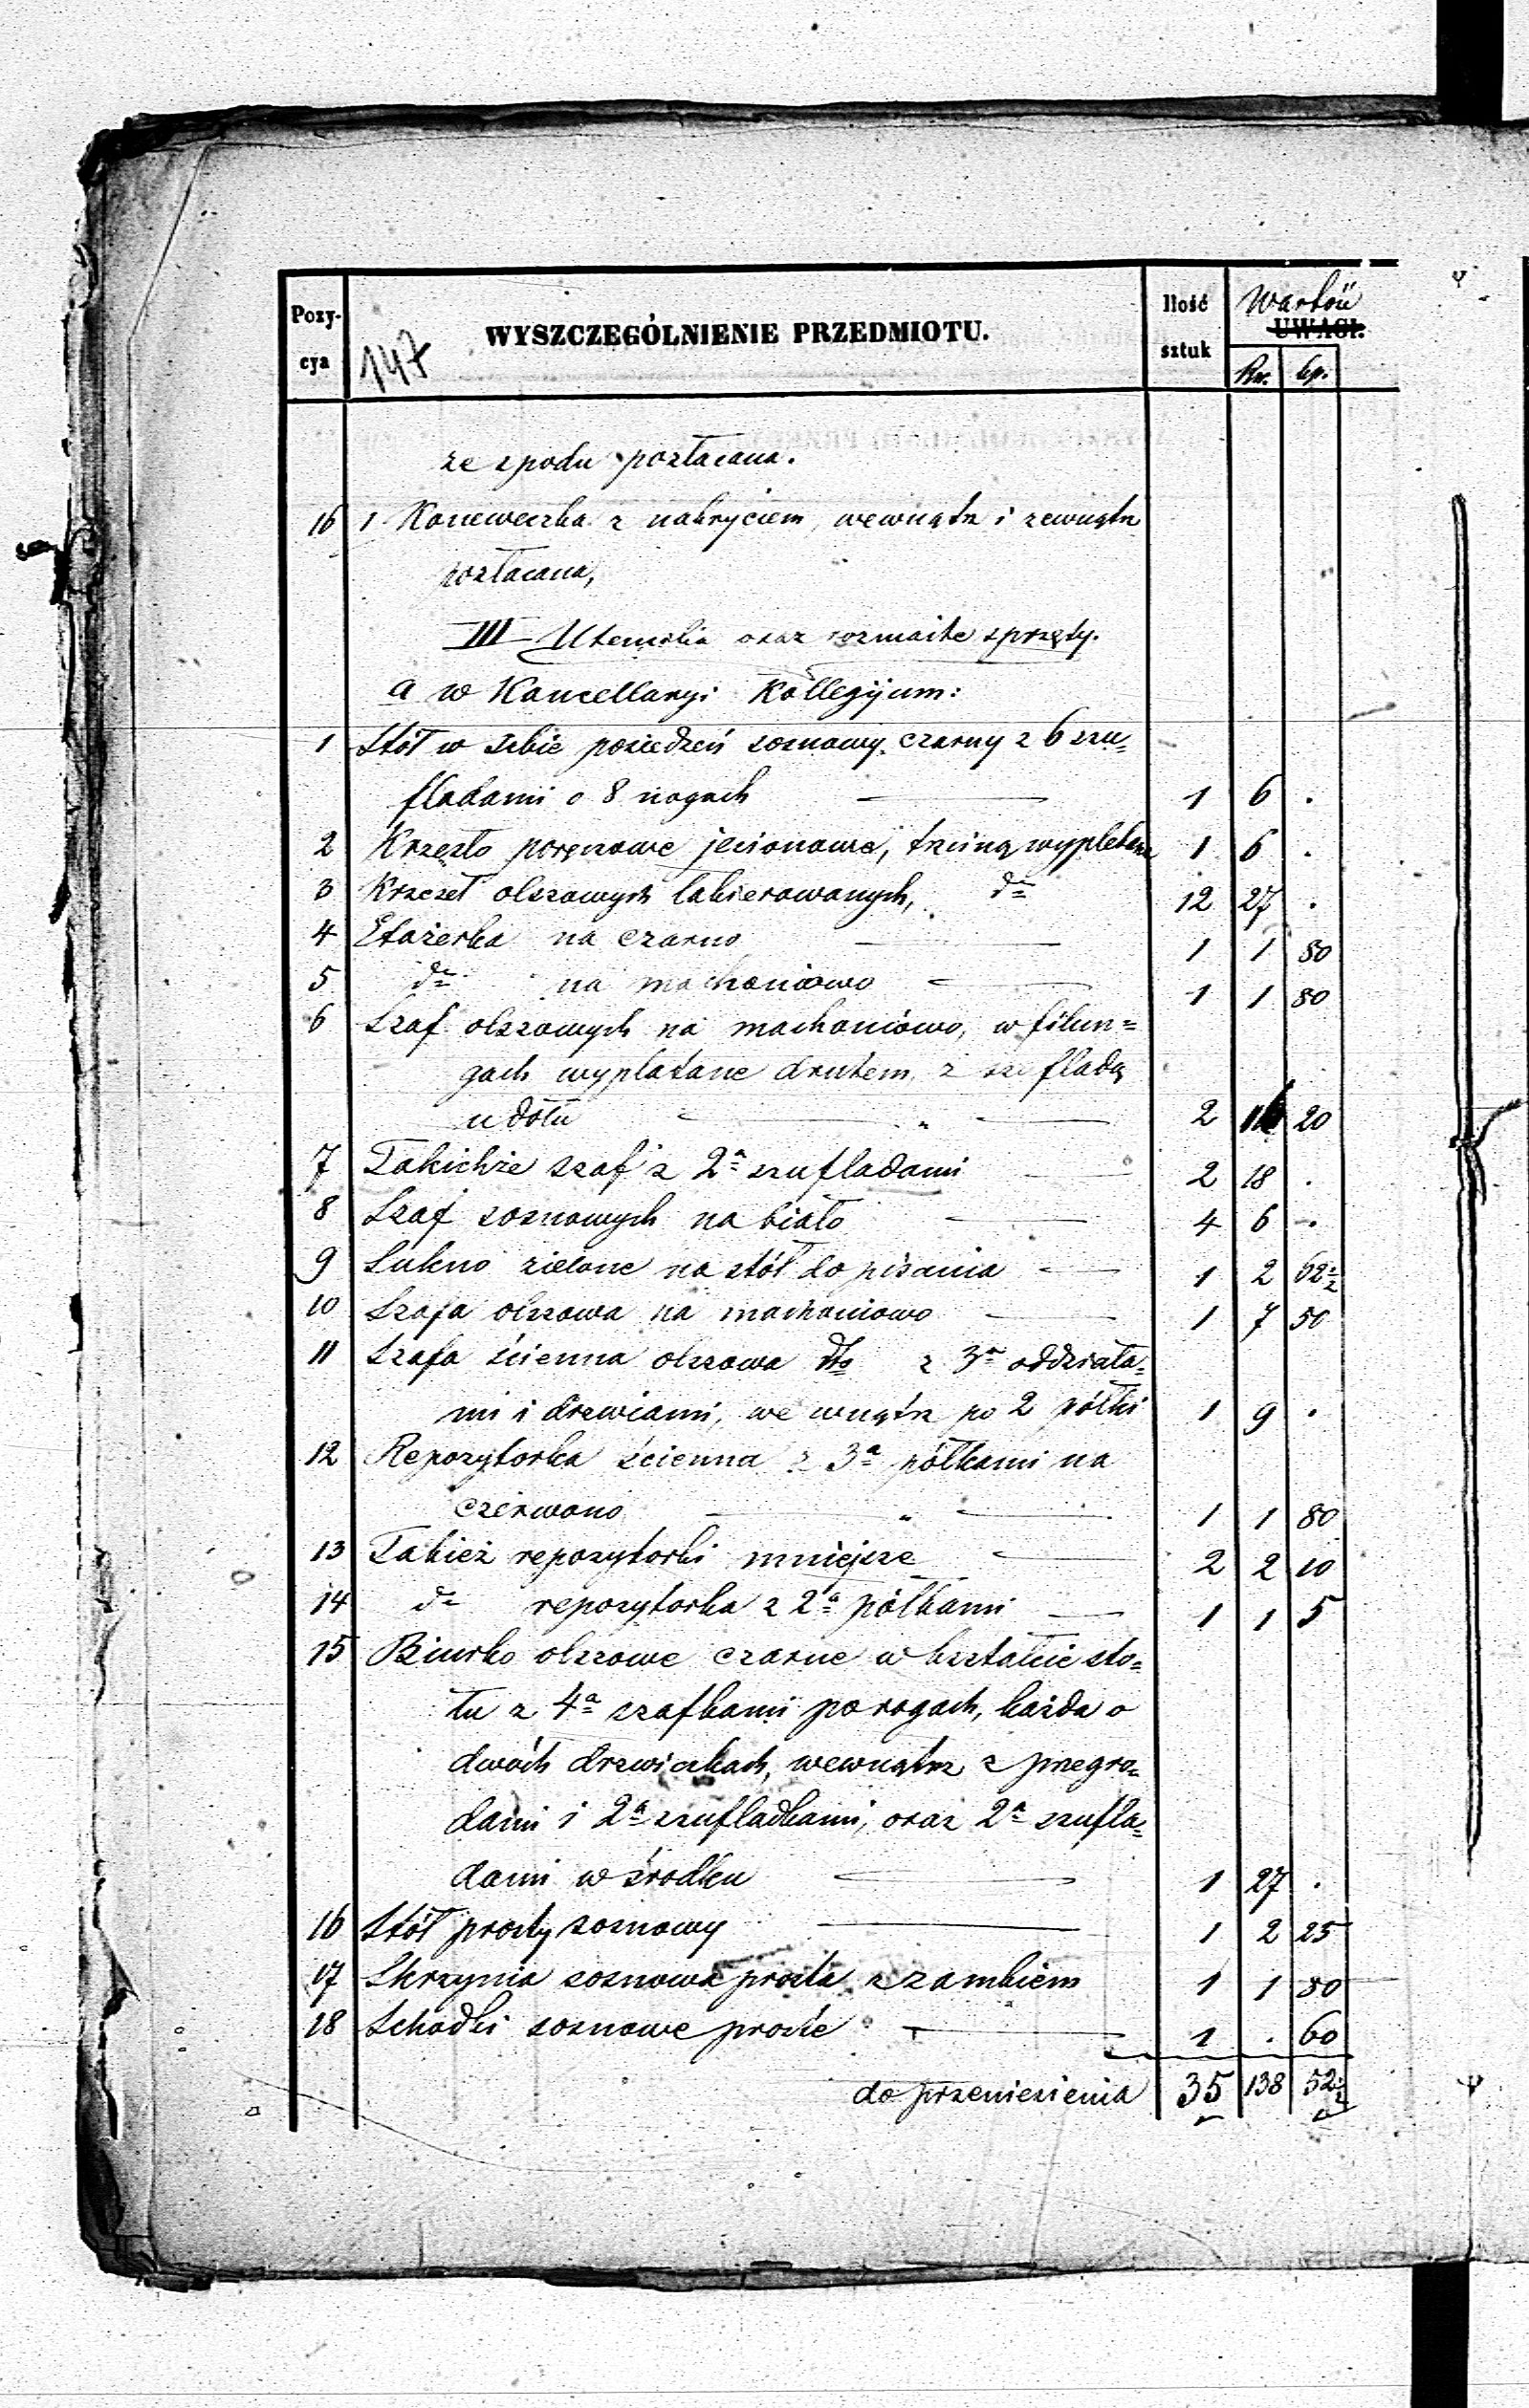 Pozycya WYSZCZEGÓLNIENIE PRZEDMIOTU. Ilość sztuk Wartość UWAGI.
147 Rs. kp.
ze spodu pozłacana.
16 1 Koneweczka z nakryciem, wewnątrz i zewnątrz
pozłacana,
III Utensilia oraz rozmaite sprzęty.
a w Kancellaryi Kollegijum:
1 Stół w Izbie posiedzeń sosnowy czarny z 6 szu=
fladami o 8 nogach — 1 6 .
2 Krzesło poręczowe jesionowe, trzciną wypletane 1 6 .
3 Krzeseł olszowych lakierowanych, do 12 27 .
4 Etażerka na czarno — 1 1 80
5 do na machoniowo — 1 1 80
6 Szaf olszowych na machoniowo, w filun=
gach wyplatane drutem, z szufladą
u dołu — " — 2 16 20
7 Takichże szaf z 2a szufladami — 2 18 .
8 Szaf sosnowych na biało — 4 6 .
9 Sukno zielone na stół do pisania — 1 2 62½
10 Szafa olszowa na machoniowo — 1 7 50
11 Szafa ścienna olszowa dto z 3a oddziała=
mi i drzwiami, we wnątrz po 2 półki 1 9 .
12 Repozytorka ścienna z 3a półkami na
czerwono — " — 1 1 80
13 Takież repozytorki mniejsze — 2 2 10
14 do repozytorka z 2a półkami — 1 1 5
15 Biurko olszowe czarne w kształcie sto=
łu z 4a szafkami po rogach, każda o
dwóch drzwiczkach, wewnątrz z przegro=
dami i 2a szufladkami, oraz 2a szufla=
dami w środku — 1 27 .
16 Stół prosty sosnowy — 1 2 25
17 Skrzynia sosnowa prosta z zamkiem 1 1 80
18 Schodki sosnowe proste — 1 . 60
do przeniesienia 35 138 52½